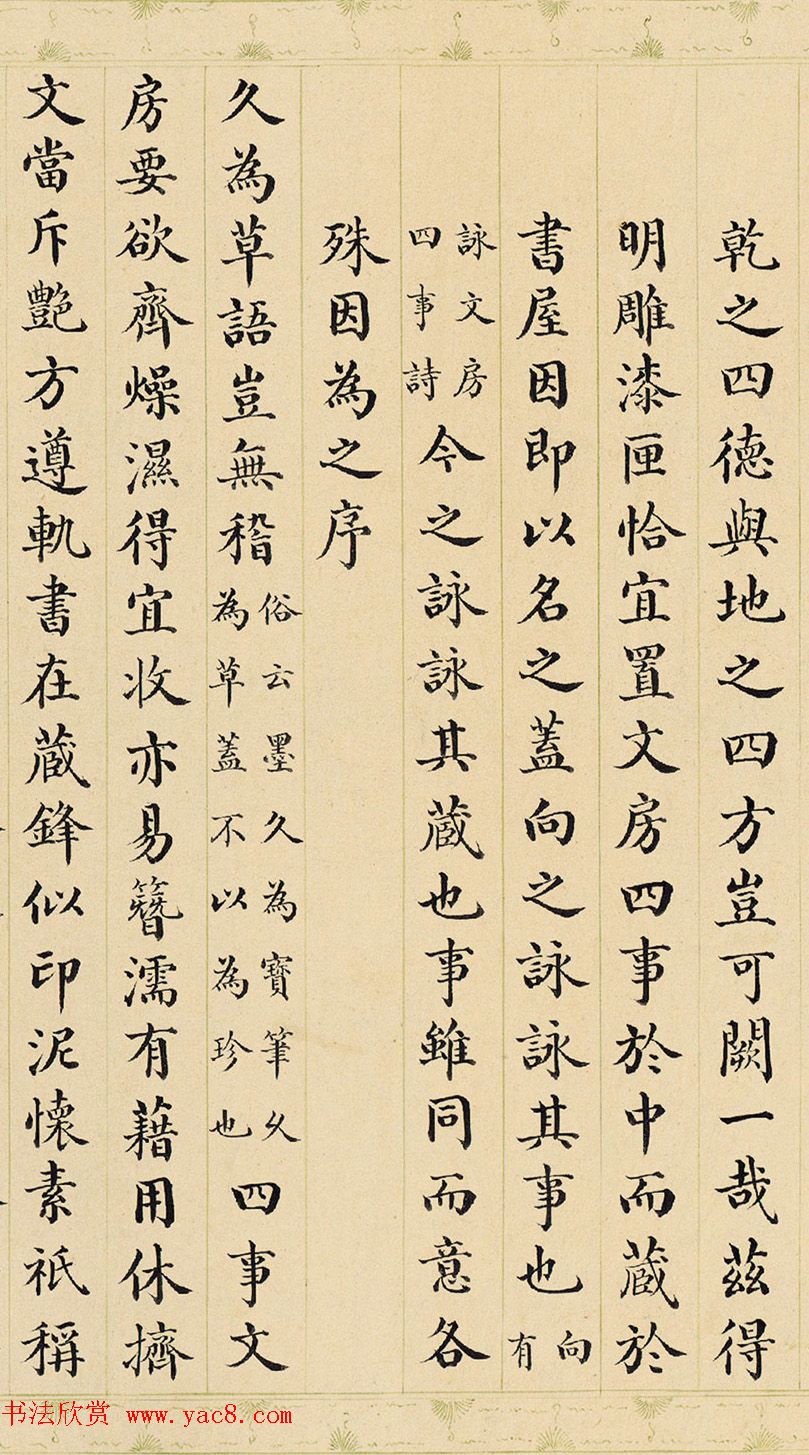 乾之四德與地之四方豈可闕一哉茲得
明雕漆匣恰宜置文房四事於中而蔵於
書屋因即以名之蓋向之詠詠其事也向有
詠文房四事詩今之詠詠其蔵也事雖同而意各
殊因為之序
久為草語豈無稽俗云墨久為寶筆久為草蓋不以為珍也四事文
房要欲齊燥濕得宜收亦易簪濡有藉用休擠
文當斥艷方遵軌書在蔵鋒似印泥懷素祇稱
书法欣赏 www.yac8.com